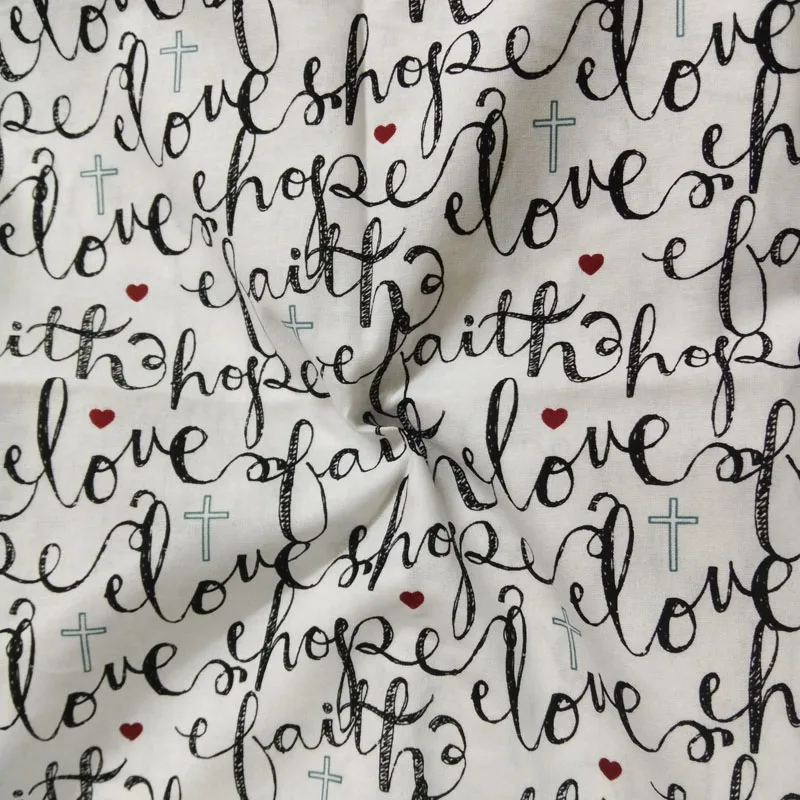 love
love shope love
pe
love hope love h
faith fa
ith hope faith hope
love faith love f
pe love hope love
love hope love h
faith
ith